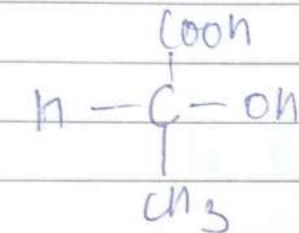 COOH
H — C — OH
CH3